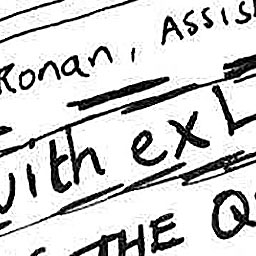 Ronan, Assis
with ex L
THE Q